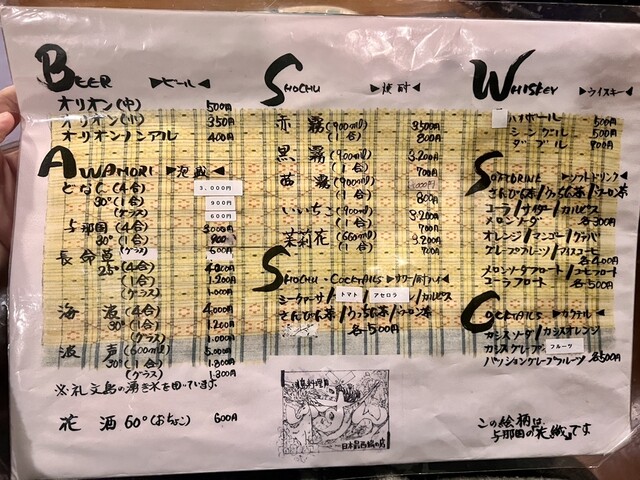 BEER ▶ビール◀
オリオン(中) 500円
オリオン(小) 350円
オリオンノンアル 400円
AWAMORI ▶泡盛◀
どなん(4合) 3,000円
30°(1合) 900円
(グラス) 600円
与那国(4合) 3,000円
30°(1合) 900
(グラス) 600円
長命草(4合) 4,000円
25°(1合) 1,200円
(グラス) 1,000円
海波(4合) 4,000円
30°(1合) 1,200円
(グラス) 1,000円
波声(600ml) 5,000円
30°(1合) 1,800円
(グラス) 1,300円
花酒60°(おちょこ) 600円
SHOCHU ▶焼酎◀
赤霧(900ml) 3,500円
(1合) 800円
黒霧(900ml) 3,200円
(1合) 700円
茜霧(900ml)
(1合) 800円
いいちこ(900ml) 3,200円
(1合) 700円
茉莉花(660ml) 3,200円
(1合) 700円
SHOCHU-COCKTAILS ▶サワー/酎ハイ◀
シークヮーサー/トマト/アセロラ/カルピス
さんぴん茶/うっちん茶/ウーロン茶
各500円
日本最西端の店
WHISKEY ▶ウイスキー◀
ハイボール 500円
シングル 500円
ダブル 900円
SOFTDRINK ▶ソフトドリンク◀
さんぴん茶/うっちん茶/ウーロン茶
コーラ/サイダー/カルピス
メロンソーダ 各300円
オレンジ/マンゴー/グァバ
グレープフルーツ/アイスコーヒー
各400円
メロンソーダフロート/コーヒーフロート
コーラフロート 各500円
COCKTAILS ▶カクテル◀
カシスソーダ/カシスオレンジ
カシスグレープフルーツ
パッショングレープフルーツ 各500円
この絵柄は
与那国の「花織」です